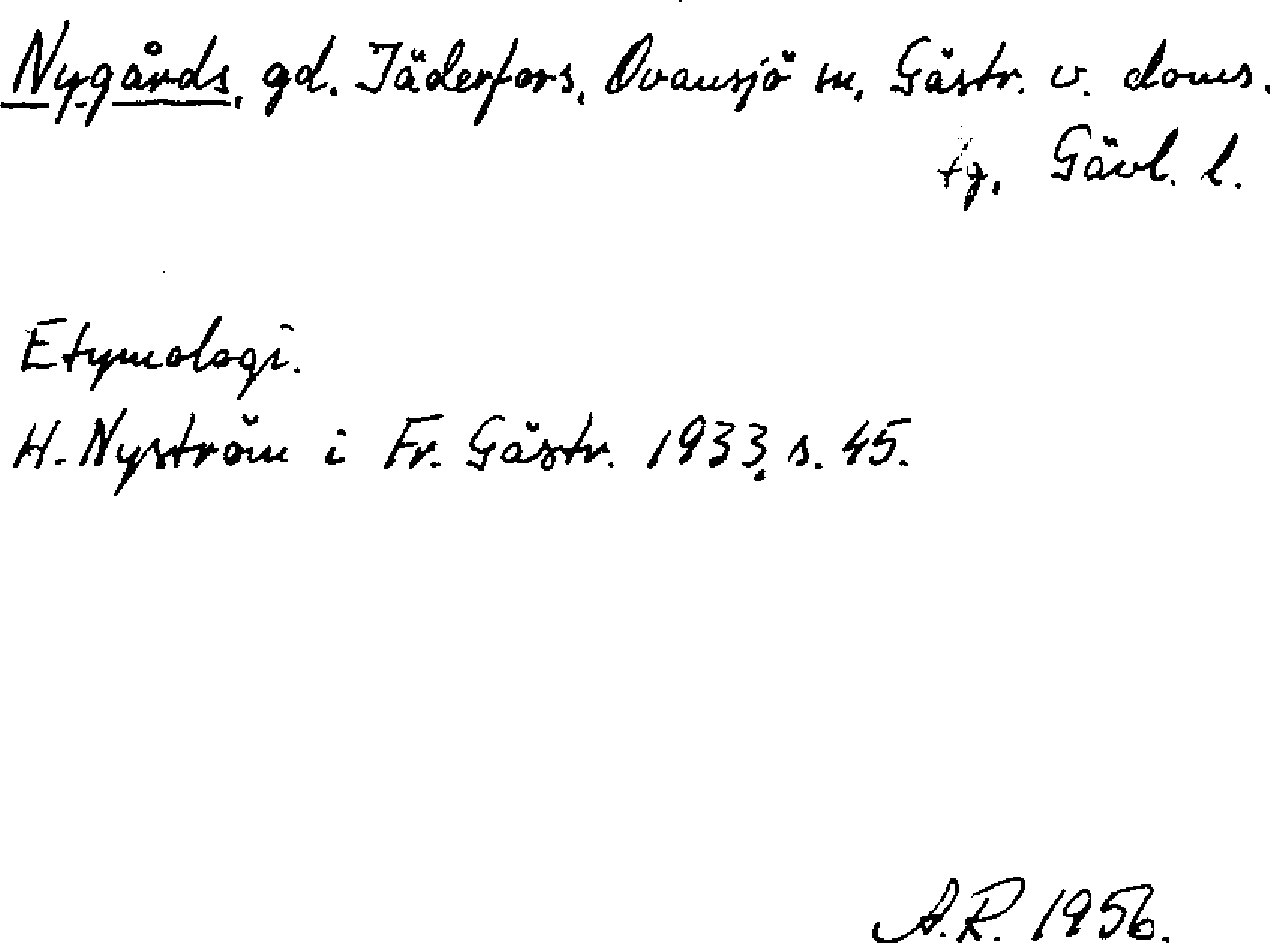 Nygårds, gd. Jäderfors, Ovansjö sn, Gästr. v. doms.
tg, Gävl. l.
Etymologi.
H. Nyström i Fr. Gästr. 1933, s. 45.
A.R. 1956.